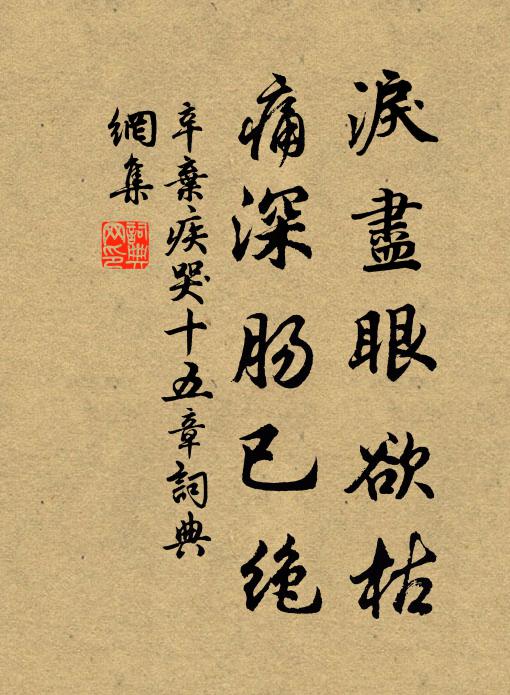 淚盡眼欲枯
痛深肠已绝
辛棄疾哭十五章詞典
網集
詞典
网印